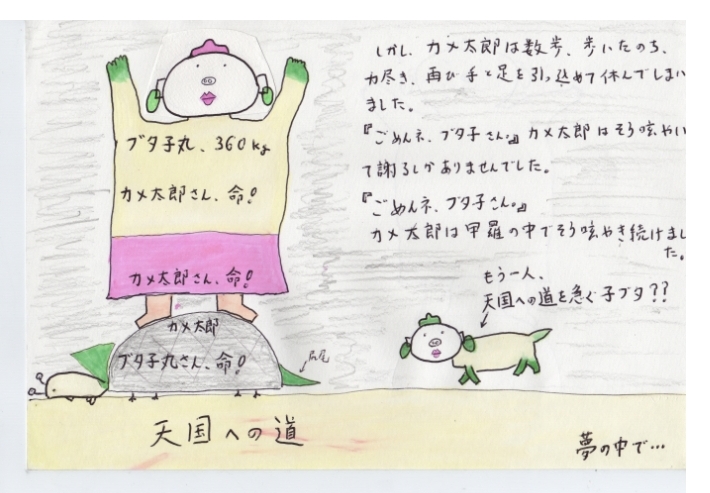 ブタ子丸、360kg
カメ太郎さん、命!
カメ太郎さん、命!
カメ太郎
ブタ子丸さん、命!
尻尾
天国への道
しかし、カメ太郎は数歩、歩いたのち、
力尽き、再び手と足を引っ込めて休んでしまい
ました。
『ごめんネ、ブタ子さん。』カメ太郎はそう呟やい
て謝るしかありませんでした。
『ごめんネ、ブタ子さん。』
カメ太郎は甲羅の中でそう呟やき続けまし
た。
もう一人、
天国への道を急ぐ子ブタ??
夢の中で…